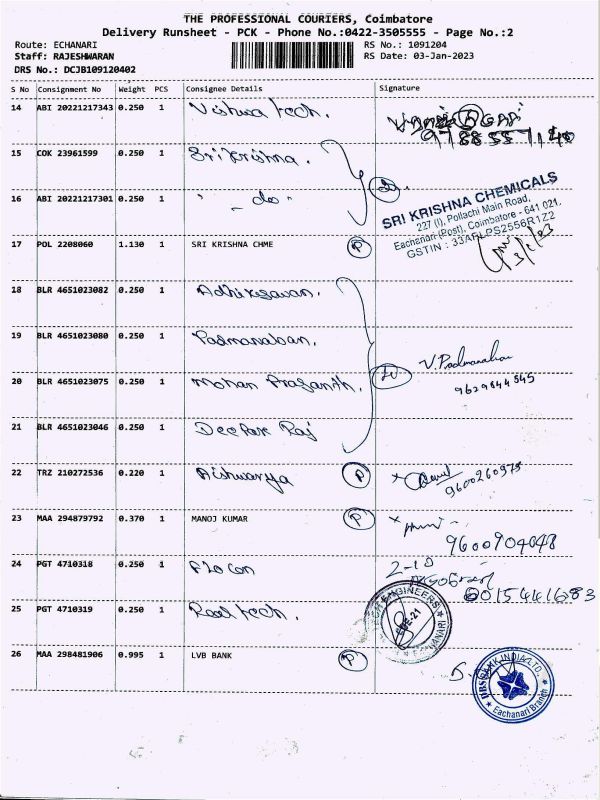 THE PROFESSIONAL COURIERS, Coimbatore
Delivery Runsheet - PCK - Phone No.:0422-3505555 - Page No.:2
Route: ECHANARI
RS No.: 1091204
Staff: RAJESHWARAN
RS Date: 03-Jan-2023
DRS No.: DCJB109120402
S No Consignment No Weight PCS Consignee Details Signature
14 ABI 20221217343 0.250 1 Vishwa tech.
9788557140
15 COK 23961599 0.250 1 Sri Krishna.
16 ABI 20221217301 0.250 1 " - do - "
SRI KRISHNA CHEMICALS
227 (I), Pollachi Main Road,
Eachanari (Post), Coimbatore - 641 021.
GSTIN : 33ARLPS2556R1Z2
17 POL 2208060 1.130 1 SRI KRISHNA CHME P
3/1/23
18 BLR 4651023082 0.250 1 Adhikesavan.
19 BLR 4651023080 0.250 1 Padmanaban.
V. Padmanaban
20 BLR 4651023075 0.250 1 Mohan Prasanth.
9629844545
21 BLR 4651023046 0.250 1 Deepak Raj
22 TRZ 210272536 0.220 1 Aishwarya P
9600260975
23 MAA 294879792 0.370 1 MANOJ KUMAR P
9600904048
24 PGT 4710318 0.250 1 Flocon
2-10
8015441683
25 PGT 4710319 0.250 1 Real tech.
26 MAA 298481906 0.995 1 LVB BANK P
DBS BANK INDIA LTD.
Eachanari Branch